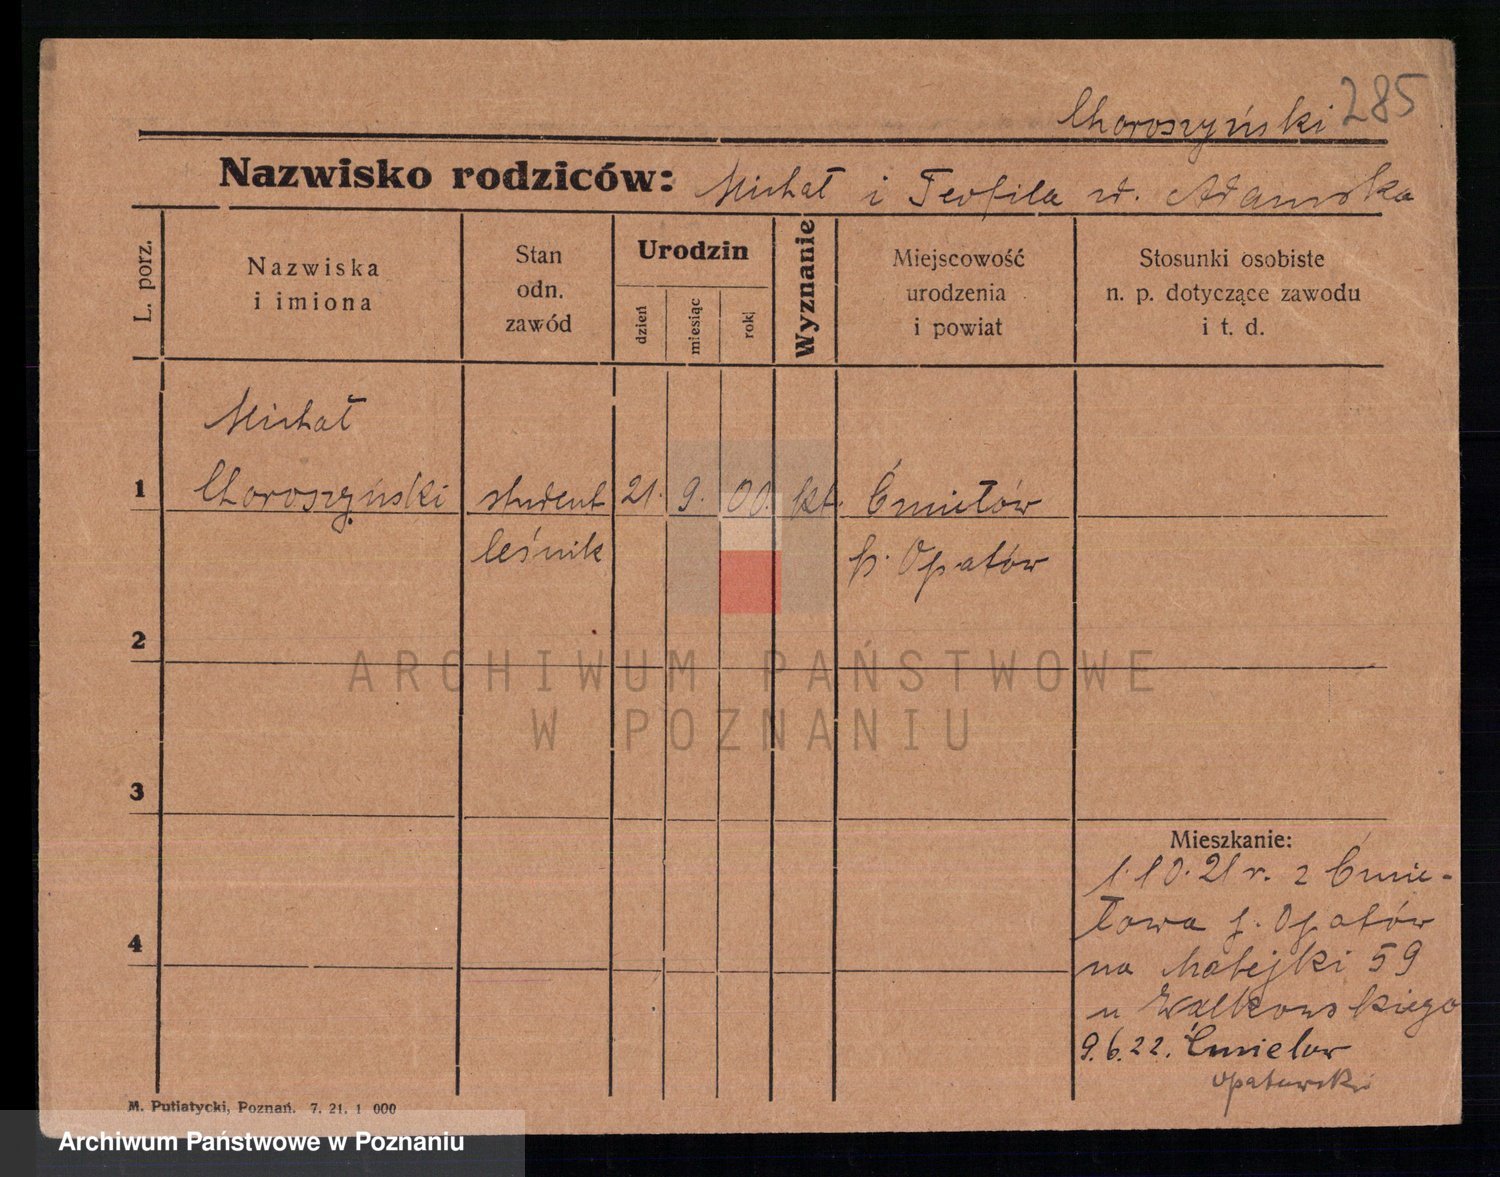 Choroszyński 285
Nazwisko rodziców: Michał i Teofila zd. Adamska
L. porz.
Nazwiska
i imiona
Stan
odn.
zawód
Urodzin
dzień
miesiąc
rok
Wyznanie
Miejscowość
urodzenia
i powiat
Stosunki osobiste
n. p. dotyczące zawodu
i t. d.
Michał
1 Choroszyński student 21. 9. 00. kt. Ćmiełów
leśnik p. Opatów
2
ARCHIWUM PAŃSTWOWE
W POZNANIU
3
Mieszkanie:
1.10.21 r. z Ćmie-
łowa p. Opatów
4
na Matejki 59
u Walkowskiego
9.6.22. Ćmielow
opatowski
M. Putiatycki, Poznań. 7. 21. 1 000
Archiwum Państwowe w Poznaniu